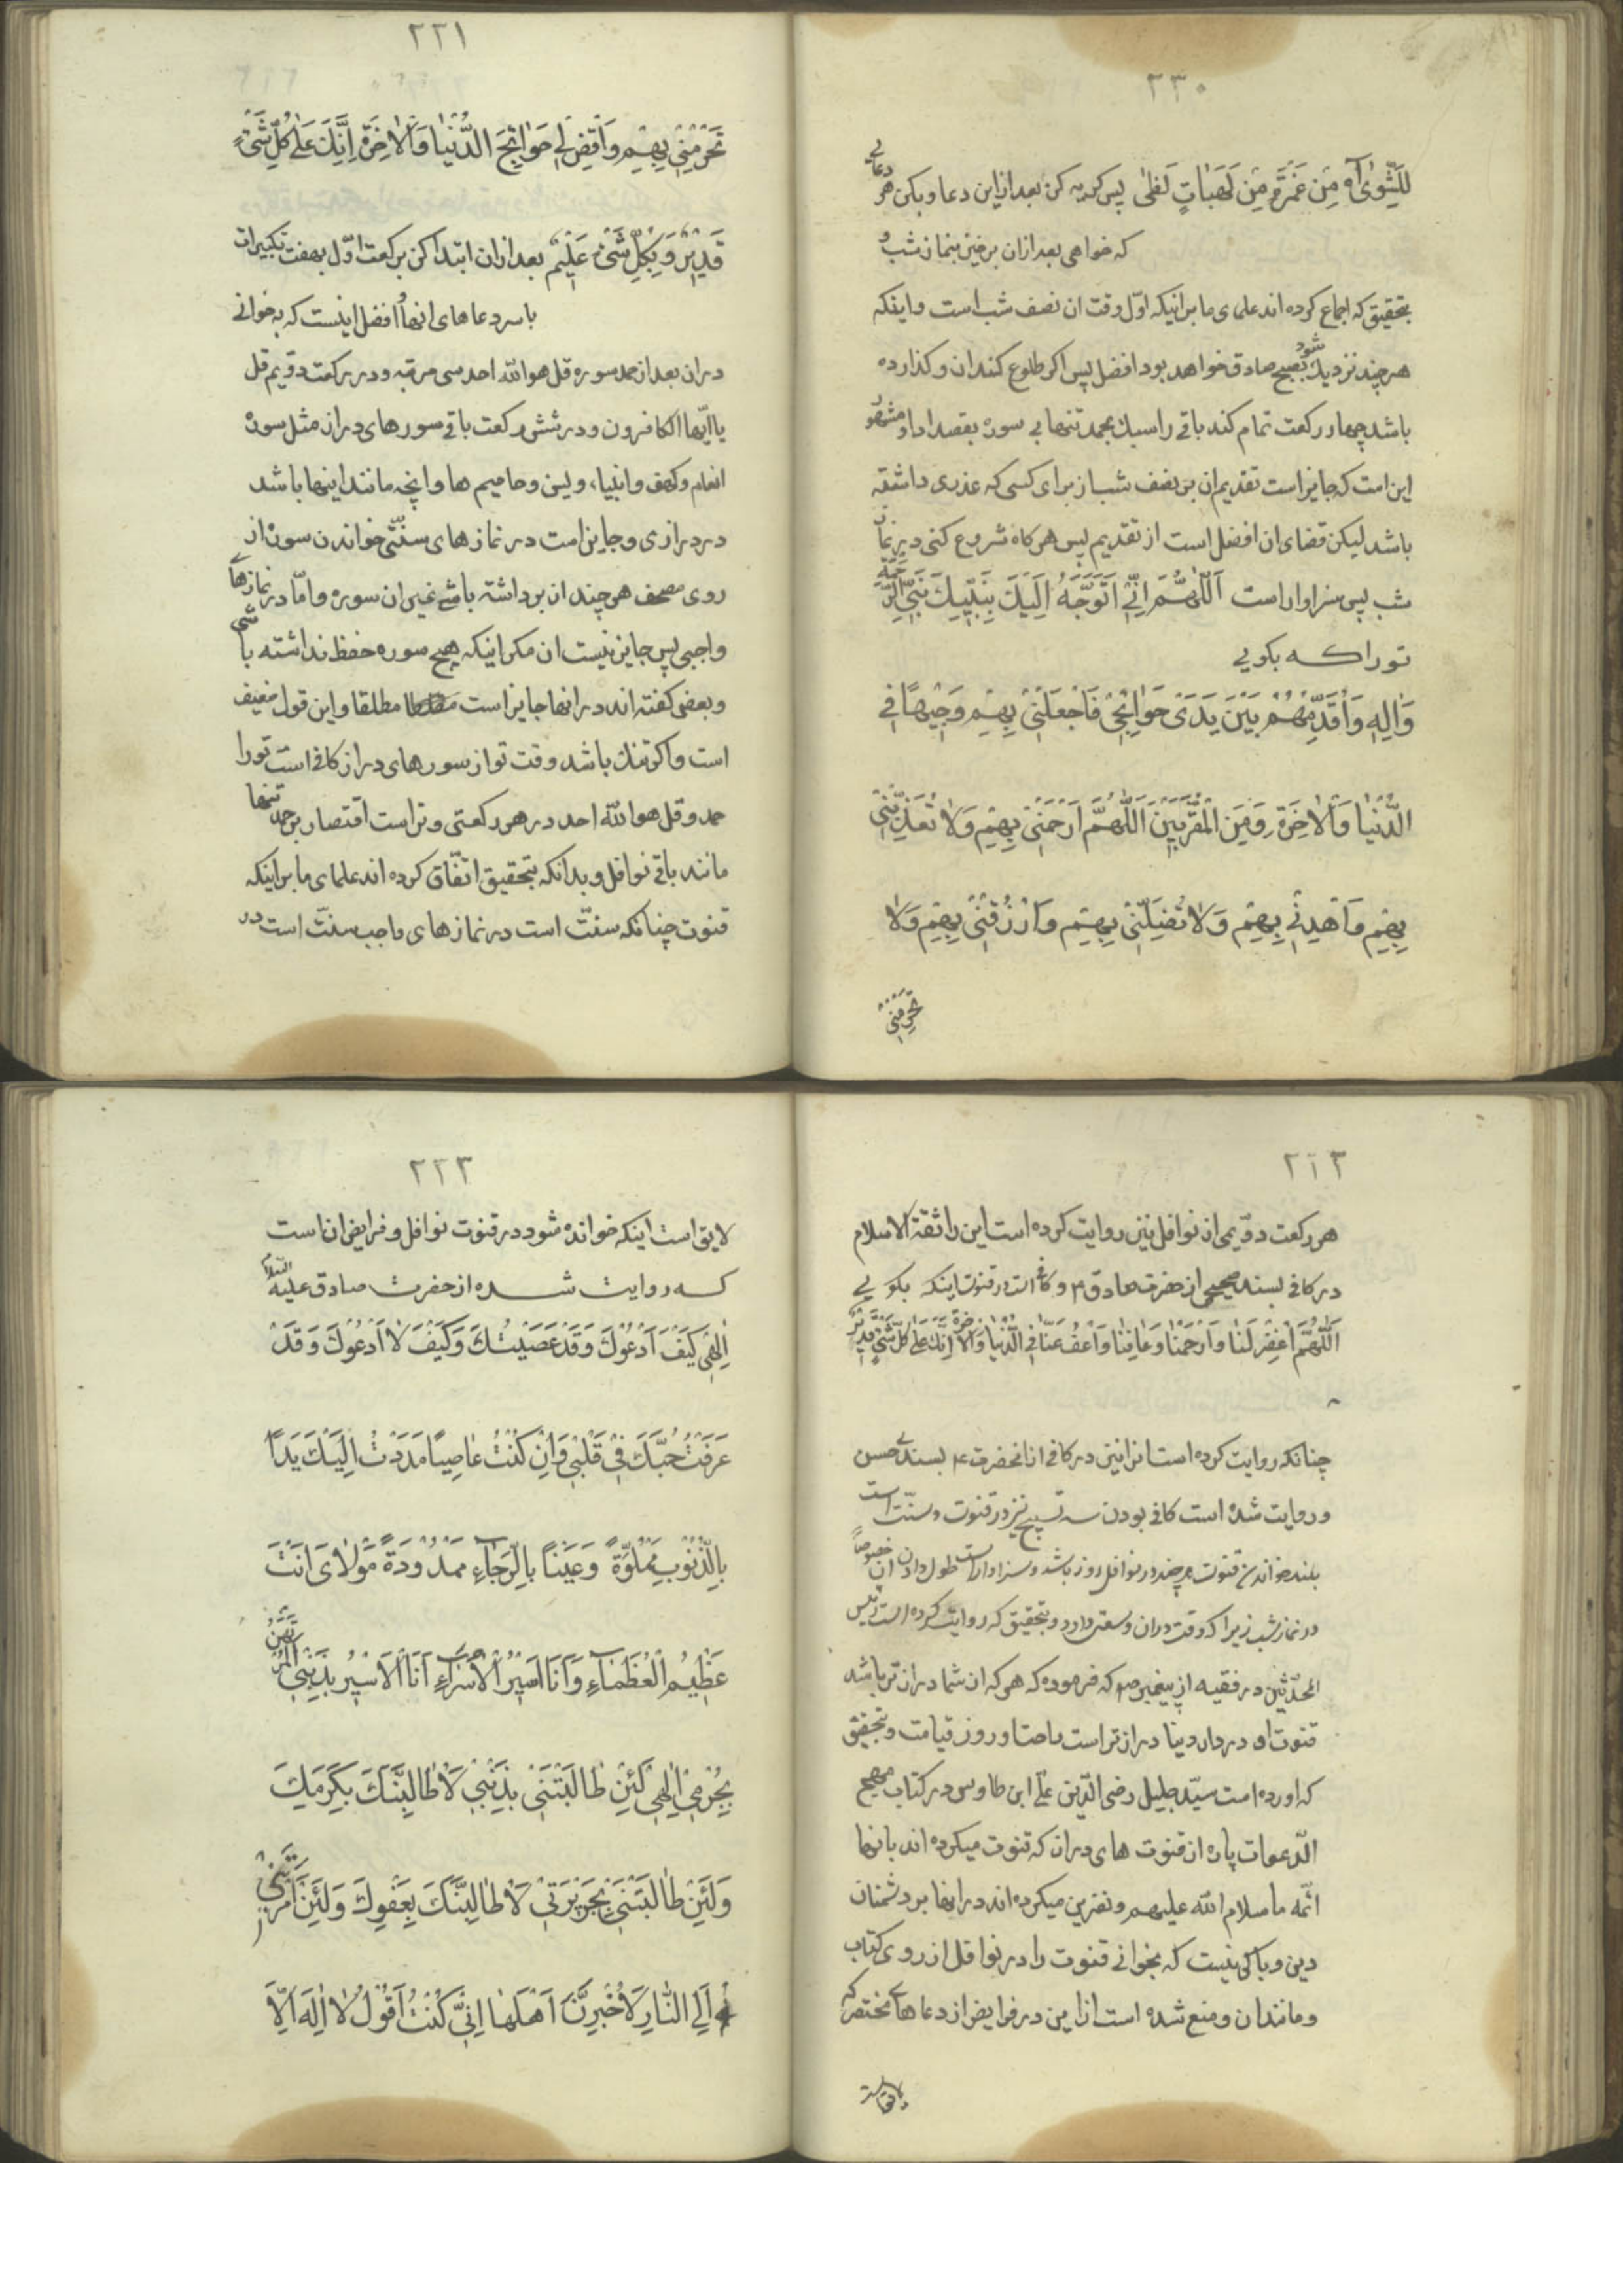 ٢٣٠
لِلشَّوىٰ آه مِنْ غَمْرَةٍ مِنْ لَهَبَاتِ لَظىٰ پس کریه کن بعد ازاین دعا وبکن هر دعائے
که خواهی بعد ازان برخیز بنماز شب و
بتحقیق که اجماع کرده اند علمای ما برانیکه اوّل وقت ان نصف شب است واینکه
هرچند نزدیك شود بصبح صادق خواهد بود افضل پس اکر طلوع کند ان و کذارده
باشد چهار رکعت تمام کند باقی را سبك بحمد تنها بی سوره بقصد ادا و مشهور
این است که جایز است تقدیم ان بر نصف شب از برای کسی که عذری داشته
باشد لیکن قضای ان افضل است از تقدیم پس هرکاه شروع کنی در نماز
شب پس سزاوار است اَللّٰهُمَّ اِنّى اَتَوَجَّهُ اِلَيْكَ بِنَبِيِّكَ نَبِيِّ الرَّحْمَةِ
تورا که بکویی
وَالِهٖ وَاُقَدِّمُهُمْ بَيْنَ يَدَىْ حَوٰائِجى فَاجْعَلْنى بِهِمْ وَجيهًا فِى
الدُّنْيٰا وَالْاٰخِرَةِ وَمِنَ الْمُقَرَّبينَ اَللّٰهُمَّ ارْحَمْنى بِهِمْ وَلاٰ تُعَذِّبْنى
بِهِمْ وَاهْدِنى بِهِمْ وَلاٰ تُضِلَّنى بِهِمْ وَارْزُقْنى بِهِمْ وَلاٰ
تَحْرِمْنى
٢٢١
تَحْرِمْنى بِهِمْ وَاقْضِ لى حَوٰائِجَ الدُّنْيٰا وَالْاٰخِرَةِ اِنَّكَ عَلىٰ كُلِّ شَىْءٍ
قَديرٌ وَ بِكُلِّ شَىْءٍ عَليمٌ بعد ازان ابتدا کن برکعت اوّل بهفت تکبیرات
باسر دعاهای انها و افضل اینست که به خوانے
دران بعد از حمد سوره قل هو الله احد سی مرتبه ودر رکعت دوّیم قل
یا ایّها الکافرون و در شش رکعت باقی سورهای دراز مثل سوره
انعام وکهف و انبیاء ویس وحامیم ها وانچه مانند اینها باشد
در درازی وجایز است در نماز های سنّتی خواندن سوره از
روی مصحف هرچند از برداشته باشے غیر ان سوره وامّا در نمازهاے
واجبی پس جایز نیست ان مکر اینکه هیچ سوره حفظ نداشته باشی
وبعضی کفته اند در انها جایز است مطلقا واین قول ضعیف
است واکر تنك باشد وقت تو از سورهای دراز کافی است تورا
حمد وقل هو الله احد در هر رکعتی وتراست اقتصار بر حمد تنها
مانند باقی نوافل و بدانکه بتحقیق اتّفاق کرده اند علمای ما براینکه
قنوت چنانکه سنّت است در نماز های واجب سنّت است در
٢٢٢
هر رکعت دوّیمی از نوافل نیز روایت کرده است این را ثقة الاسلام
در کافی بسند صحیحی از حضرت صادق ؏ و کافی است در قنوت اینکه بکویی
اَللّٰهُمَّ اغْفِرْ لَنٰا وَارْحَمْنٰا وَعٰافِنٰا وَاعْفُ عَنّٰا فِى الدُّنْيٰا وَالْاٰخِرَةِ اِنَّكَ عَلىٰ كُلِّ شَىْءٍ قَديرٌ
چنانکه روایت کرده است انرا نیز در کافی از انحضرت ؏ بسندے حسن
و روایت شده است کافی بودن سه تسبیح نیز در قنوت و سنّت است
بلند خواندن قنوت هر چند در نوافل روز باشد و سزاوار است طول دادن ان خصوصاً
در نماز شب زیرا که وقت دران وسعتی دارد و بتحقیق که روایت کرده است رئیس
المحدّثین در فقیه از پیغمبر ص که فرموده که هرکه از شما دراز تر باشد
قنوت او در دار دنیا دراز تر است راحت او روز قیامت وبتحقیق
که اورده است سیّد جلیل رضی الدّین علی ابن طاوس در کتاب مهج
الدّعوات پاره از قنوت های دراز که قنوت میکرده اند بانها
ائمّه ما سلام الله علیهم و نفرین میکرده اند در انها بر دشمنان
دین وباکی نیست که بخوانی قنوت را در نوافل از روی کتاب
ومانند ان و منع شده است از این در فرایض از دعا هاے مختصر که
لایق است
٢٢٣
لایق است اینکه خوانده شود در قنوت نوافل و فرایض ان است
که روایت شده از حضرت صادق علیه السّلام
اِلٰهى كَيْفَ اَدْعُوكَ وَقَدْ عَصَيْتُكَ وَكَيْفَ لاٰ اَدْعُوكَ وَقَدْ
عَرَفْتُ حُبَّكَ فى قَلْبى وَاِنْ كُنْتُ عٰاصِيًا مَدَدْتُ اِلَيْكَ يَدًا
بِالذُّنُوبِ مَمْلُوَّةً وَعَيْنًا بِالرَّجٰاءِ مَمْدُودَةً مَوْلاٰىَ اَنْتَ
عَظيمُ الْعُظَمٰاءِ وَاَنَا اَسيرُ الْاُسَرٰاءِ اَنَا الْاَسيرُ بِذَنْبى الْمُرْتَهَنُ
بِجُرْمى اِلٰهى لَئِنْ طٰالَبْتَنى بِذَنْبى لَاُطٰالِبَنَّكَ بِكَرَمِكَ
وَلَئِنْ طٰالَبْتَنى بِجَريرَتى لَاُطٰالِبَنَّكَ بِعَفْوِكَ وَلَئِنْ اَمَرْتَ بى
اِلَى النّٰارِ لَاُخْبِرَنَّ اَهْلَهٰا اِنّى كُنْتُ اَقُولُ لاٰ اِلٰهَ اِلاَّ